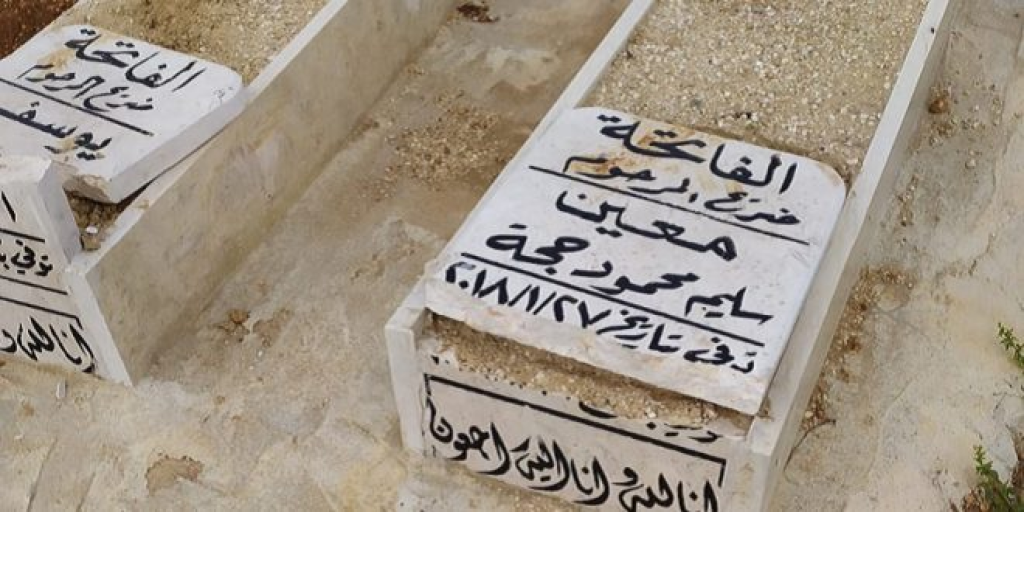 الفاتحة
ضريح المرحوم
معين
سليم محمود حجة
توفى بتاريخ ٢٠١٨/١/٢٧
انا لله و انا اليه راجعون
الفاتحة
ضريح المرحوم
يوسف
انا لله و